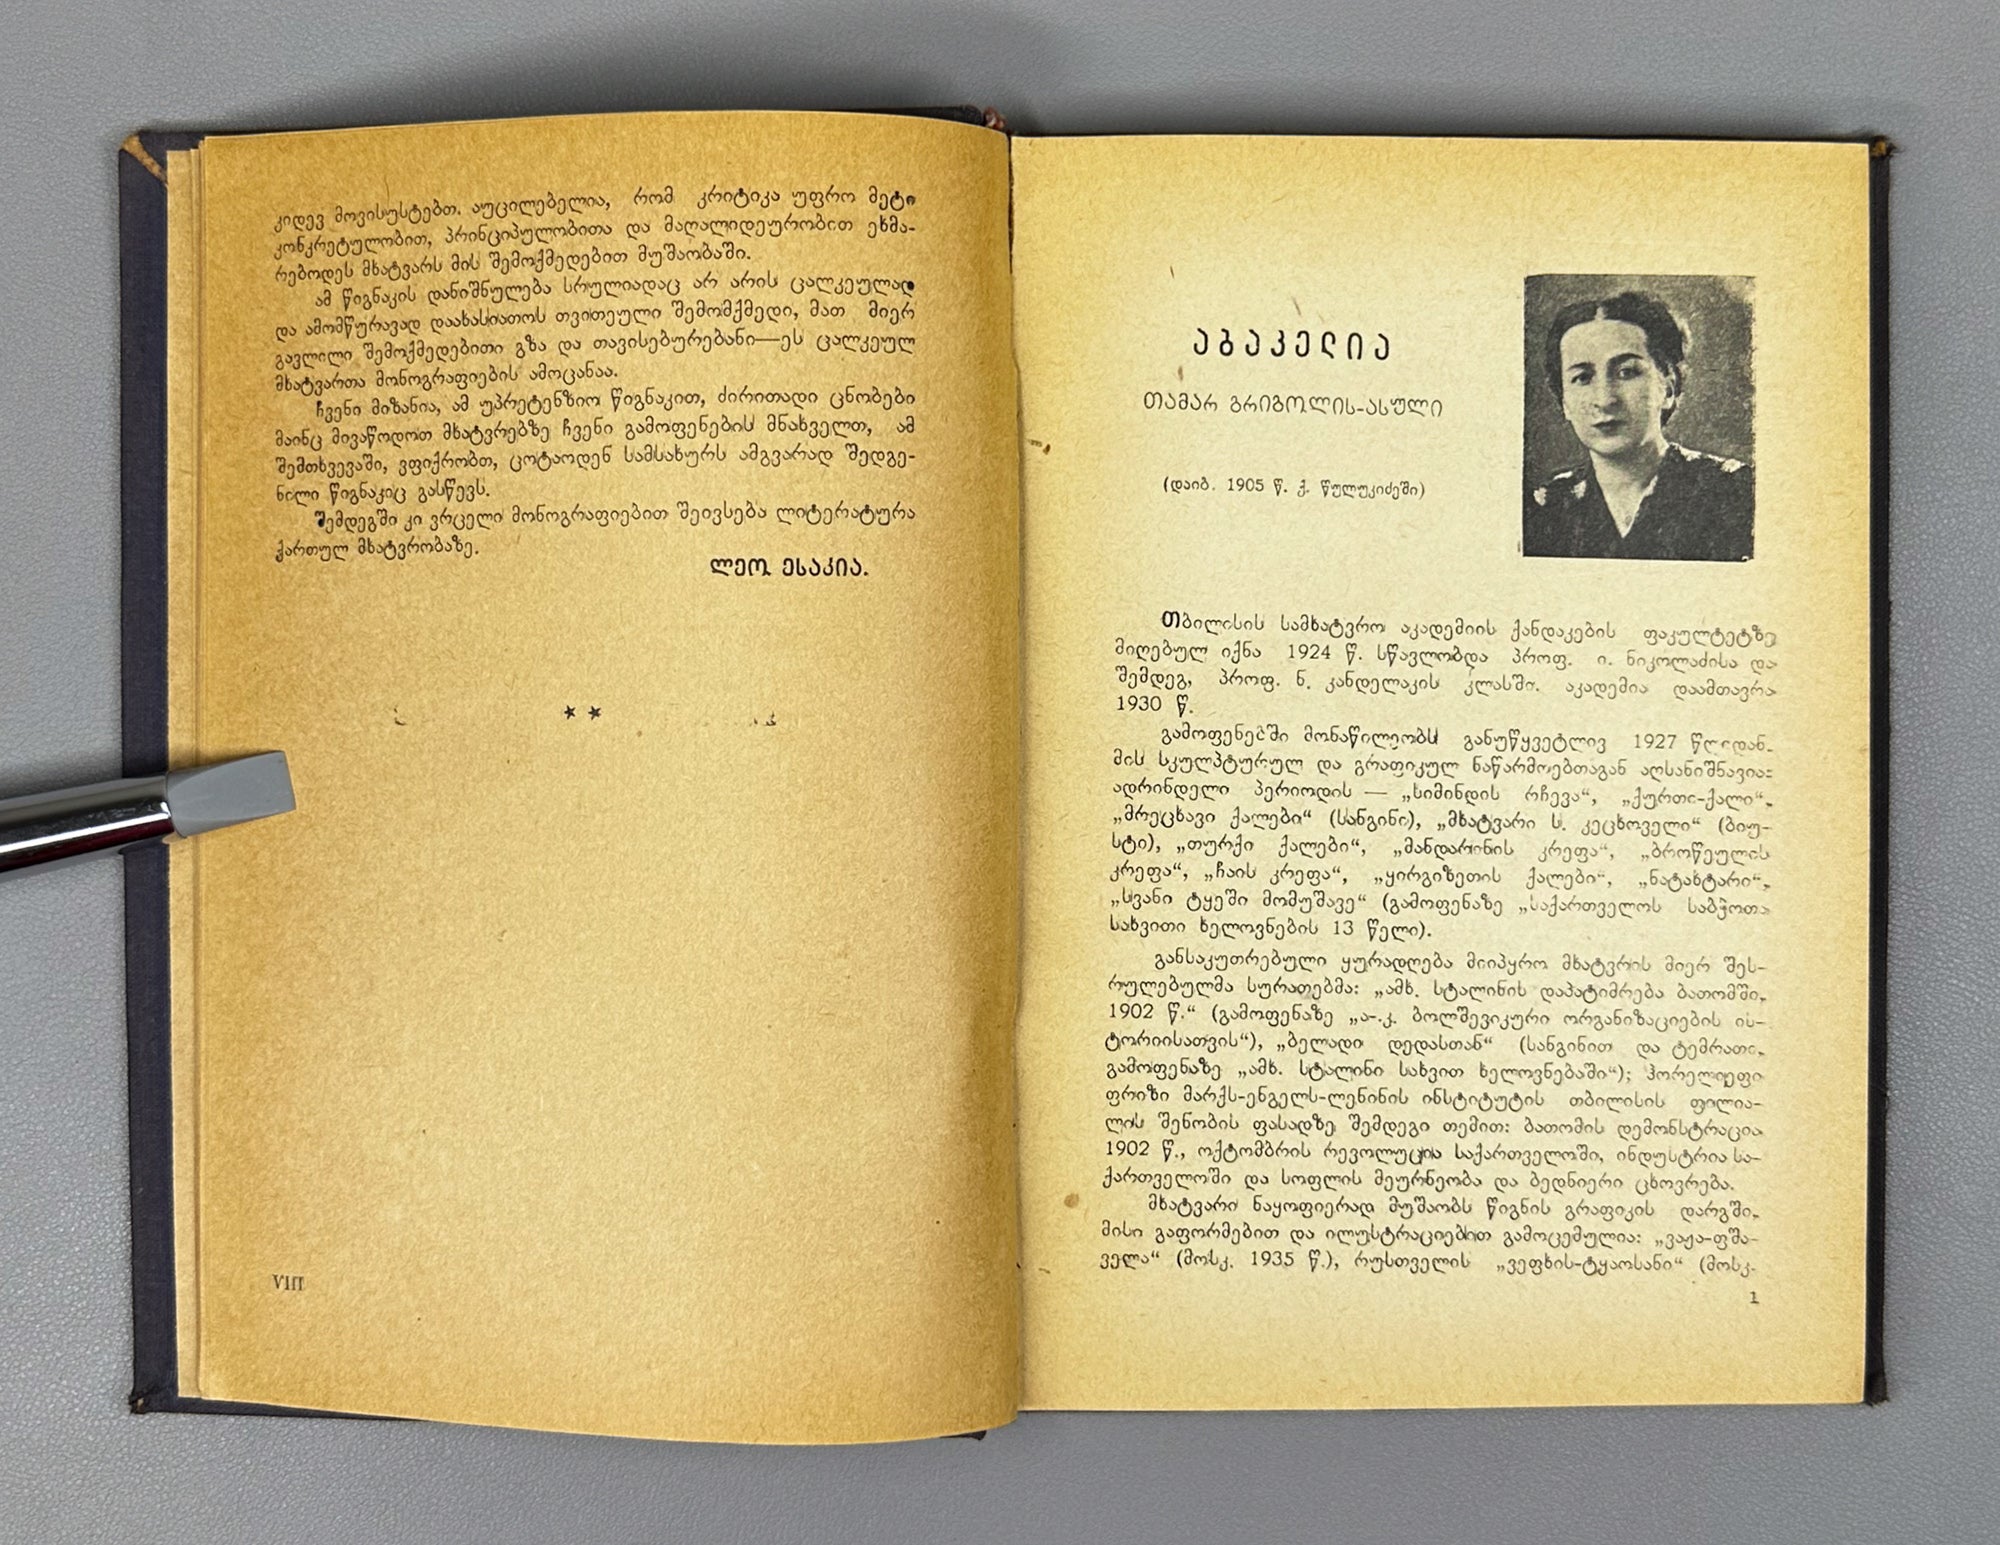 კიდევ მოვისუსტებთ. აუცილებელია, რომ კრიტიკა უფრო მეტი
კონკრეტულობით, პრინციპულობითა და მაღალიდეურობით ეხმა-
რებოდეს მხატვარს მის შემოქმედებით მუშაობაში.
ამ წიგნაკის დანიშნულება სრულიადაც არ არის ცალკეულად
და ამომწურავად დაახასიათოს თვითეული შემომქმედი, მათ მიერ
გავლილი შემოქმედებითი გზა და თავისებურებანი—ეს ცალკეულ
მხატვართა მონოგრაფიების ამოცანაა.
ჩვენი მიზანია, ამ უპრეტენზიო წიგნაკით, ძირითადი ცნობები
მაინც მივაწოდოთ მხატვრებზე ჩვენი გამოფენების მნახველთ, ამ
შემთხვევაში, ვფიქრობთ, ცოტაოდენ სამსახურს ამგვარად შედგე-
ნილი წიგნაკიც გასწევს.
შემდეგში კი ვრცელი მონოგრაფიებით შეივსება ლიტერატურა
ქართულ მხატვრობაზე.
ლეო ესაკია.
★ ★
VIII
აბაკელია
თამარ გრიგოლის-ასული
(დაიბ. 1905 წ. ქ. წულუკიძეში)
თბილისის სამხატვრო აკადემიის ქანდაკების ფაკულტეტზე
მიღებულ იქნა 1924 წ. სწავლობდა პროფ. ი. ნიკოლაძისა და
შემდეგ, პროფ. ნ. კანდელაკის კლასში. აკადემია დაამთავრა
1930 წ.
გამოფენებში მონაწილეობს განუწყვეტლივ 1927 წლიდან.
მის სკულპტურულ და გრაფიკულ ნაწარმოებთაგან აღსანიშნავია:
ადრინდელი პერიოდის — „სიმინდის რჩევა“, „ქურთი-ქალი“,
„მრეცხავი ქალები“ (სანგინი), „მხატვარი ს. კეცხოველი“ (ბიუ-
სტი), „თურქი ქალები“, „მანდარინის კრეფა“, „ბროწეულის
კრეფა“, „ჩაის კრეფა“, „ყირგიზეთის ქალები“, „ნატახტარი“,
„სვანი ტყეში მომუშავე“ (გამოფენაზე „საქართველოს საბჭოთა
სახვითი ხელოვნების 13 წელი).
განსაკუთრებული ყურადღება მიიპყრო მხატვრის მიერ შეს-
რულებულმა სურათებმა: „ამხ. სტალინის დაპატიმრება ბათომში,
1902 წ.“ (გამოფენაზე „ა-.კ. ბოლშევიკური ორგანიზაციების ის-
ტორიისათვის“), „ბელადი დედასთან“ (სანგინით და ტემრათი,
გამოფენაზე „ამხ. სტალინი სახვით ხელოვნებაში“); ჰორელიეფი
ფრიზი მარქს-ენგელს-ლენინის ინსტიტუტის თბილისის ფილია-
ლის შენობის ფასადზე შემდეგი თემით: ბათომის დემონსტრაცია
1902 წ., ოქტომბრის რევოლუცია საქართველოში, ინდუსტრია სა-
ქართველოში და სოფლის მეურნეობა და ბედნიერი ცხოვრება.
მხატვარი ნაყოფიერად მუშაობს წიგნის გრაფიკის დარგში,
მისი გაფორმებით და ილუსტრაციებით გამოცემულია: „ვაჟა-ფშა-
ველა“ (მოსკ. 1935 წ.), რუსთველის „ვეფხის-ტყაოსანი“ (მოსკ.
1